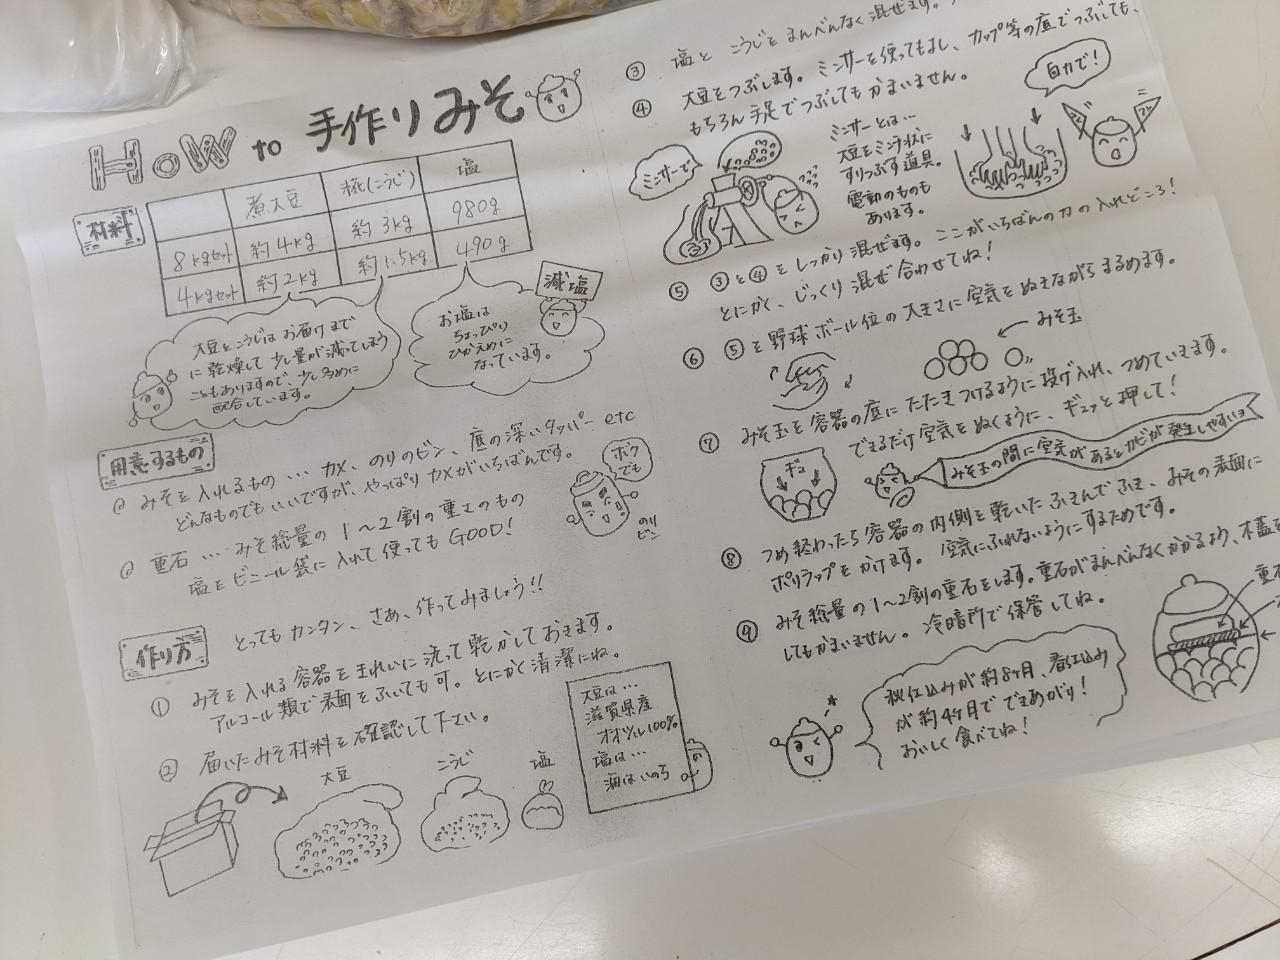 HoW to 手作りみそ
材料
煮大豆 糀(こうじ) 塩
8kgセット 約4kg 約3kg 980g
4kgセット 約2kg 約1.5kg 490g
大豆とこうじはお届けまで
に乾燥して少し量が減ってしまう
こともありますので、少し多めに
配合しています。
減塩
お塩は
ちょっぴり
ひかえめに
なっています。
用意するもの
@ みそを入れるもの … カメ、のりのビン、底の深いタッパー etc
どんなものでもいいですが、やっぱりカメがいちばんです。
ボクでも
のりビン
@ 重石 … みそ総量の1〜2割の重さのもの
塩をビニール袋に入れて使ってもGOOD!
作り方
とってもカンタン、さあ、作ってみましょう!!
① みそを入れる容器をきれいに洗って乾かしておきます。
アルコール類で表面をふいても可。とにかく清潔にね。
② 届いたみそ材料を確認して下さい。
大豆 こうじ 塩
大豆は…
滋賀県産
オオツル100%
塩は…
海はいのち
③ 塩とこうじをまんべんなく混ぜます。
④ 大豆をつぶします。ミンサーを使ってもよし、カップ等の底でつぶしても、
もちろん手足でつぶしてもかまいません。
ミンサーで
ミンサーとは…
大豆をミンチ状に
すりつぶす道具。
電動のものも
あります。
自力で!
⑤ ③と④をしっかり混ぜます。ここがいちばんの力の入れどころ!
とにかく、じっくり混ぜ合わせてね!
⑥ ⑤を野球ボール位の大きさに空気をぬきながらまるめます。
みそ玉
⑦ みそ玉を容器の底にたたきつけるように投げ入れ、つめていきます。
できるだけ空気をぬくように、ギュッと押して!
ギュ
みそ玉の間に空気があるとカビが発生しやすいヨ
⑧ つめ終わったら容器の内側を乾いたふきんでふき、みその表面に
ポリラップをかけます。空気にふれないようにするためです。
⑨ みそ総量の1〜2割の重石をします。重石がまんべんなくかかるよう、木蓋を
してもかまいません。冷暗所で保管してね。
重石
秋仕込みが約8ヶ月、春仕込み
が約4ヶ月でできあがり!
おいしく食べてね!